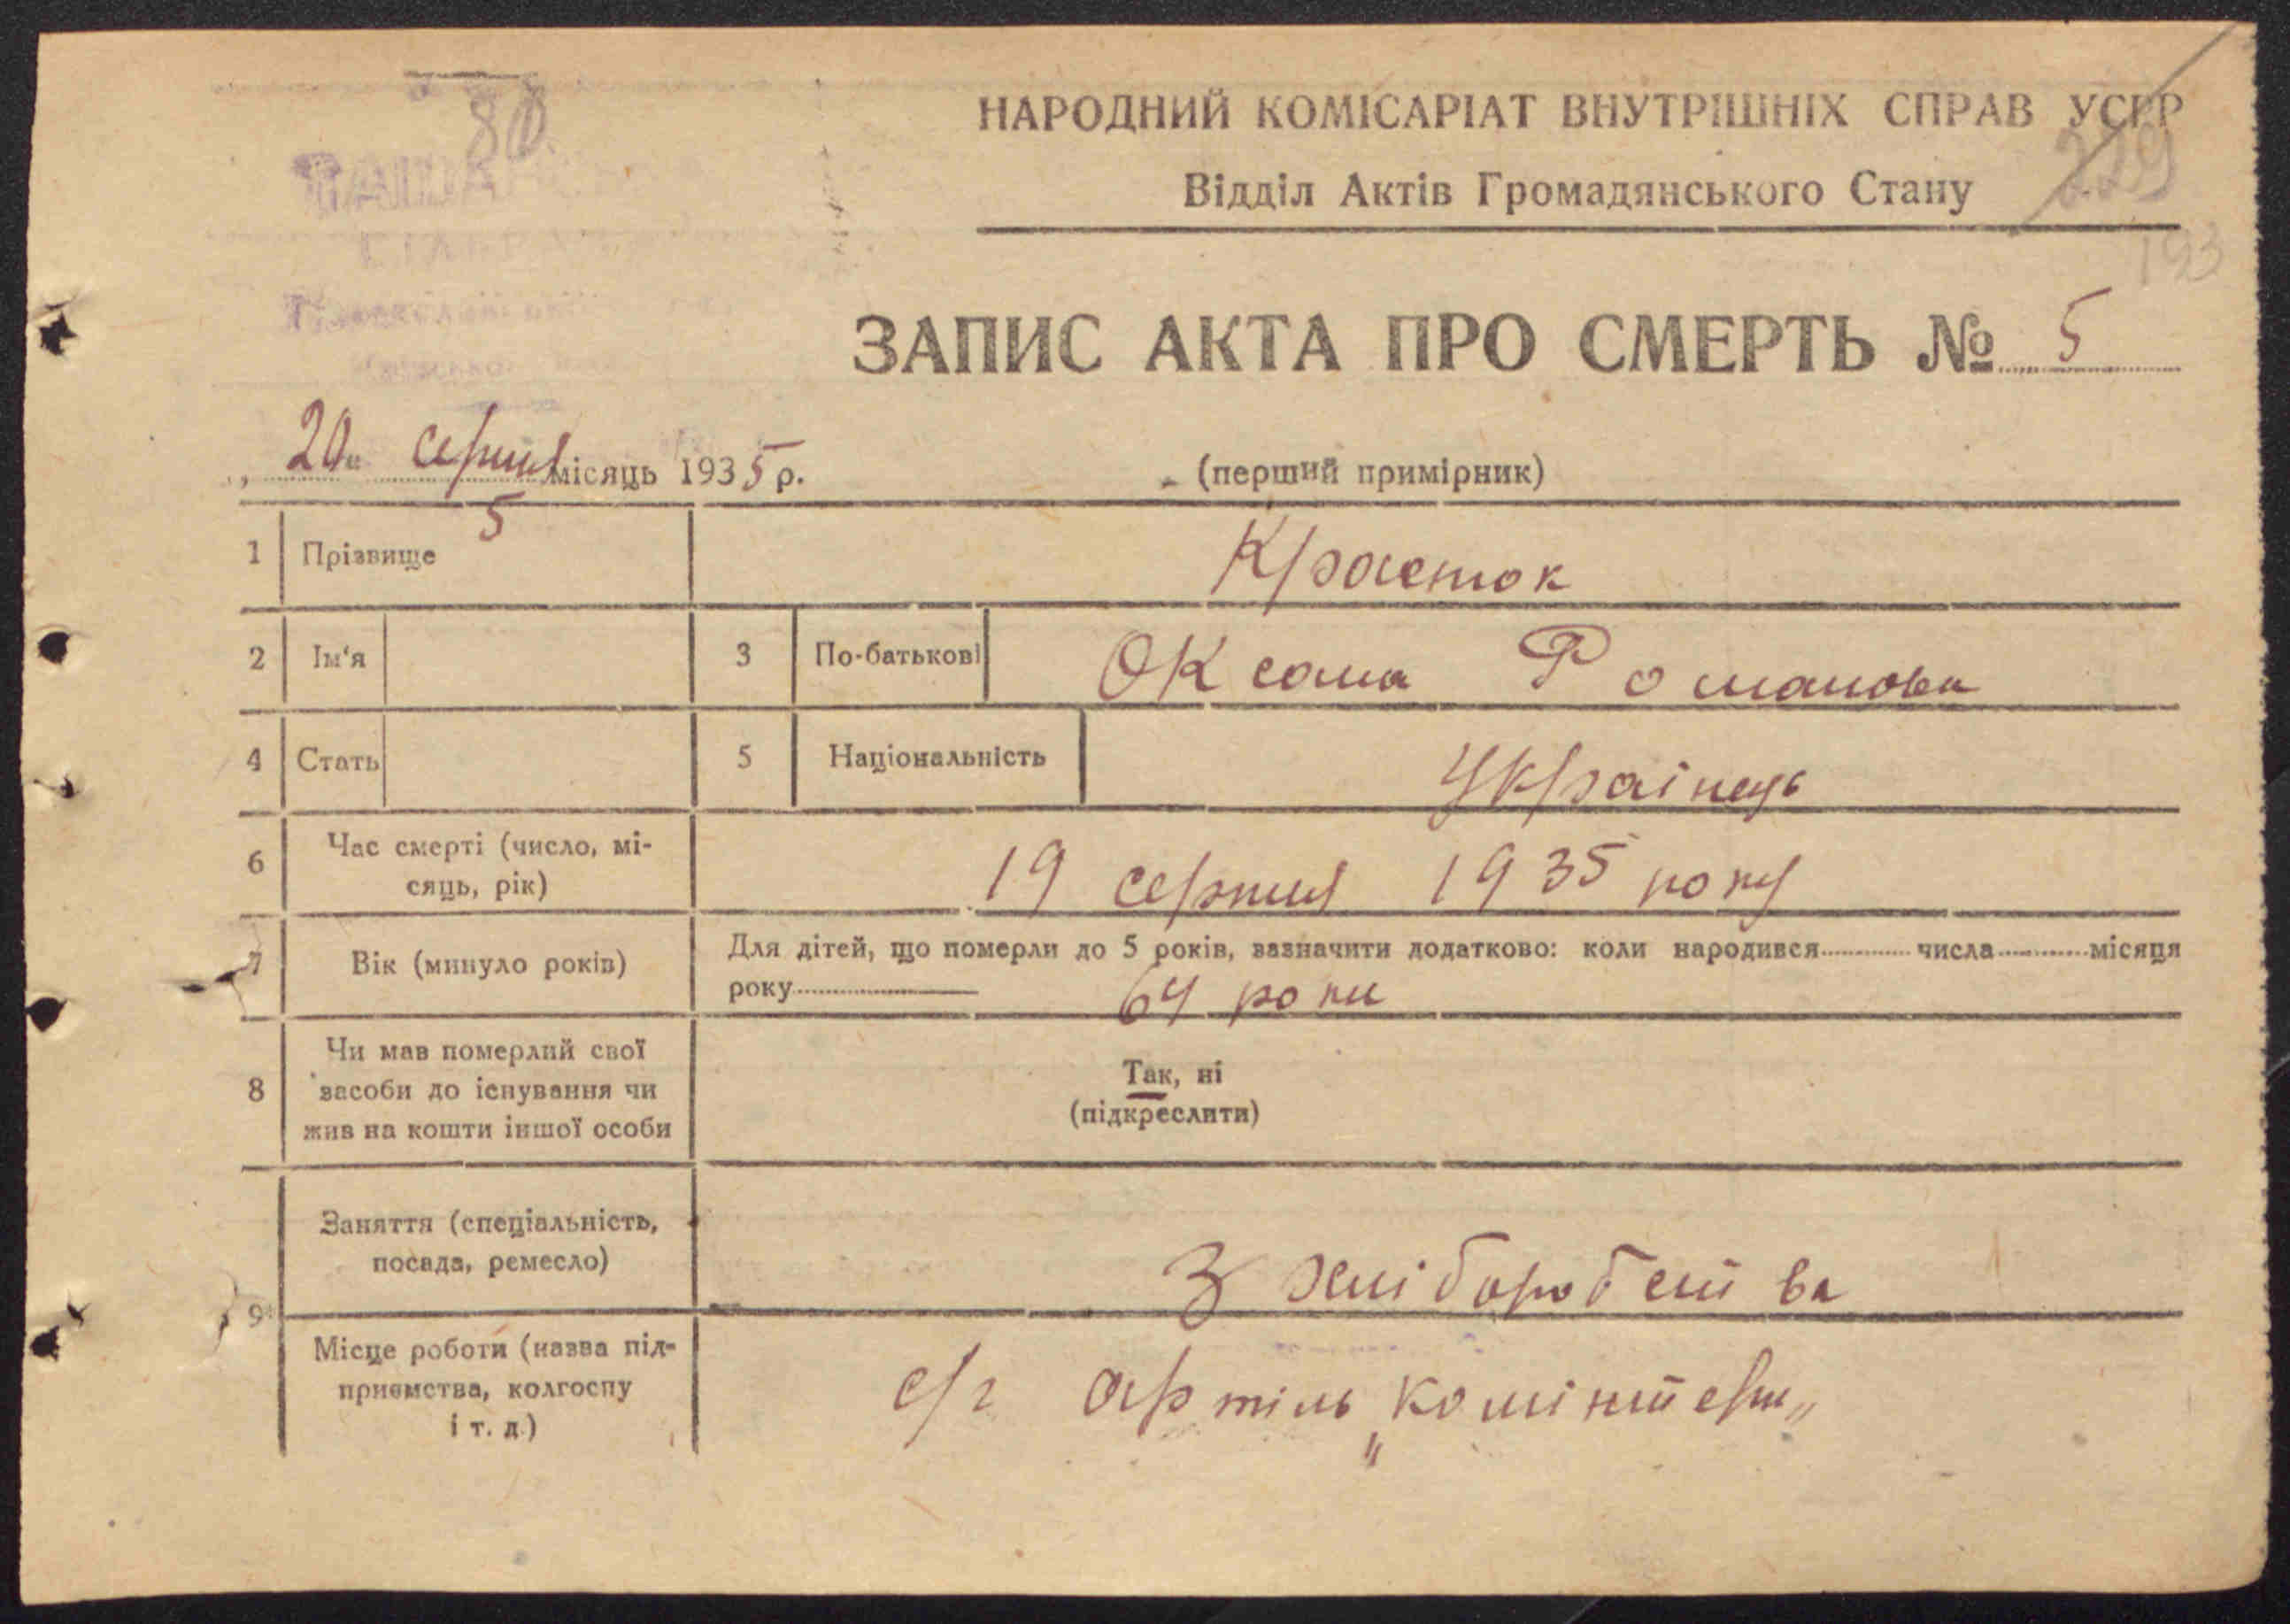 80
НАРОДНИЙ КОМІСАРІАТ ВНУТРІШНІХ СПРАВ УСРР
Відділ Актів Громадянського Стану
229
193
ЗАПИС АКТА ПРО СМЕРТЬ № 5
„ 20 " серпня місяць 1935 р.
(перший примірник)
5
1 Прізвище
2 Ім'я 3 По-батькові Оксана Романова
4 Стать 5 Національність Українець
6 Час смерті (число, мі-
сяць, рік) 19 серпня 1935 року
7 Вік (минуло років) Для дітей, що померли до 5 років, зазначити додатково: коли народився числа місяця
року 64 роки
8 Чи мав померлий свої
засоби до існування чи
жив на кошти іншої особи
Так, ні
(підкреслити)
9 Заняття (спеціальність,
посада, ремесло) З хліборобства
Місце роботи (назва під-
приємства, колгоспу
і т. д.)
с/г артіль „Комінтерн"